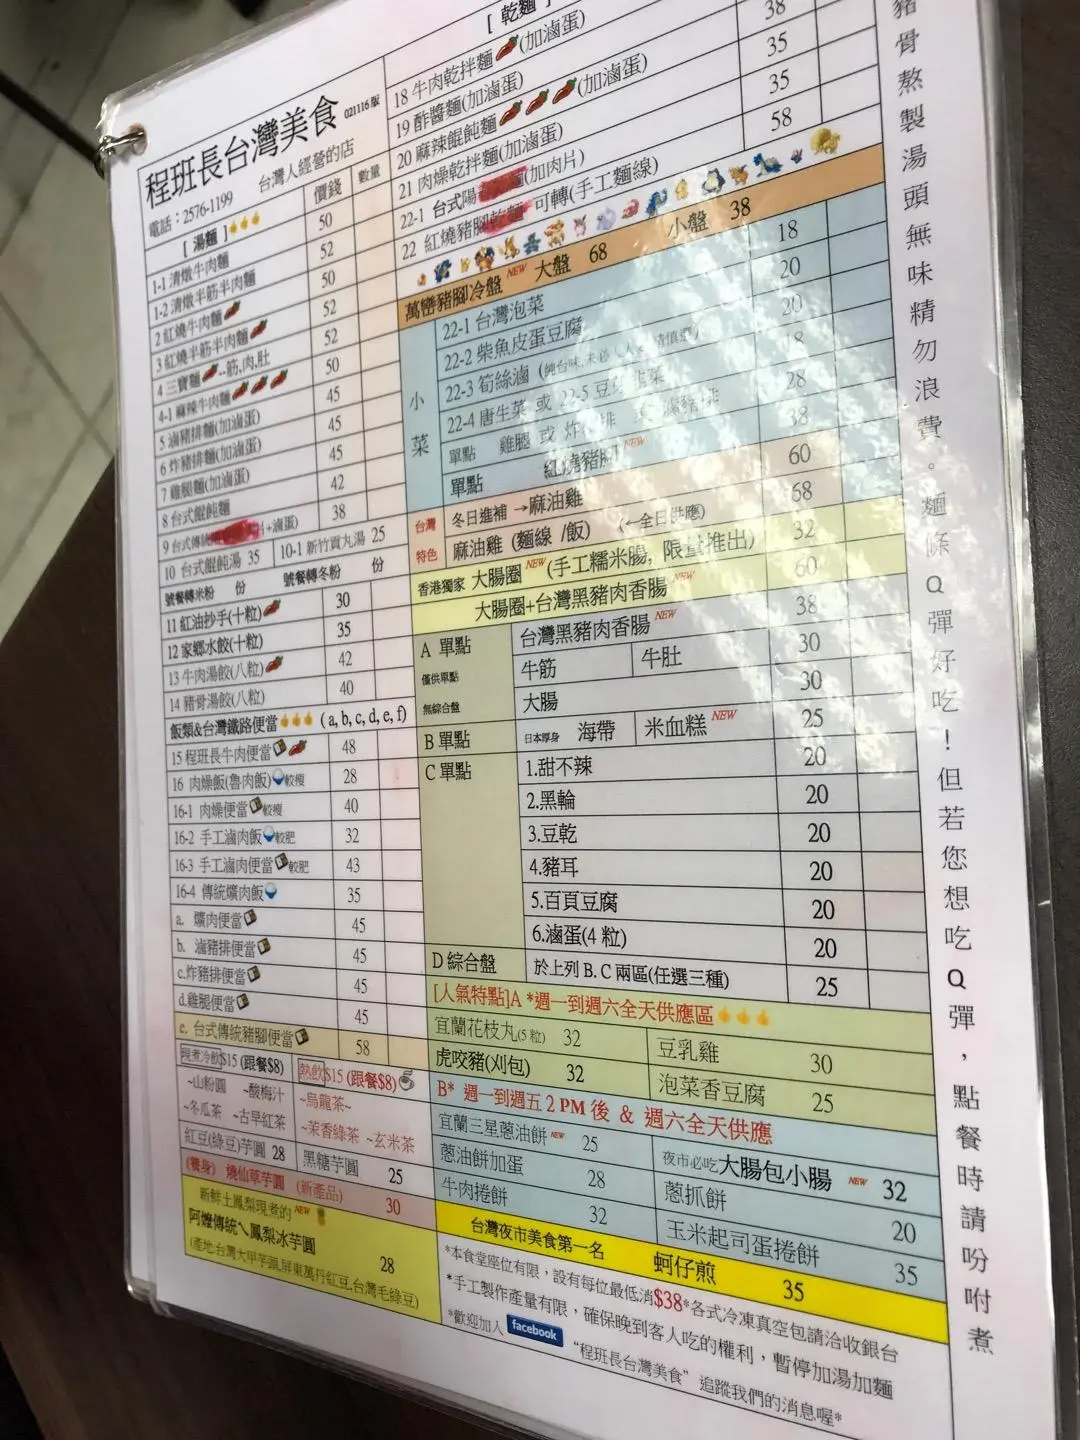 程班長台灣美食 021116版
電話：2576-1199 台灣人經營的店
[ 湯麵 ] 價錢 數量
1-1 清燉牛肉麵 50
1-2 清燉半筋半肉麵 52
2 紅燒牛肉麵 50
3 紅燒半筋半肉麵 52
4 三寶麵--筋,肉,肚 52
4-1 麻辣牛肉麵 50
5 滷豬排麵(加滷蛋) 45
6 炸豬排麵(加滷蛋) 45
7 雞腿麵(加滷蛋) 45
8 台式餛飩麵 42
9 台式傳統 +滷蛋) 38
10 台式餛飩湯 35 10-1 新竹貢丸湯 25
號餐轉米粉 份 號餐轉冬粉 份
11 紅油抄手(十粒) 30
12 家鄉水餃(十粒) 35
13 牛肉湯餃(八粒) 42
14 豬骨湯餃(八粒) 40
飯類&台灣鐵路便當 ( a, b, c, d, e, f)
15 程班長牛肉便當 48
16 肉燥飯(魯肉飯) 較瘦 28
16-1 肉燥便當 較瘦 40
16-2 手工滷肉飯 較肥 32
16-3 手工滷肉便當 較肥 43
16-4 傳統爌肉飯 35
a. 爌肉便當 45
b. 滷豬排便當 45
c.炸豬排便當 45
d.雞腿便當 45
e. 台式傳統豬腳便當 58
現煮冷飲$15 (跟餐$8)
~山粉圓 ~酸梅汁
~冬瓜茶 ~古早紅茶
熱飲$15 (跟餐$8)
~烏龍茶~
~茉香綠茶 ~玄米茶
紅豆(綠豆)芋圓 28 黑糖芋圓 25
(養身) 燒仙草芋圓 (新產品) 30
新鮮土鳳梨現煮的 NEW
阿嬤傳統ㄟ鳳梨冰芋圓 28
(產地:台灣大甲芋頭,屏東萬丹紅豆,台灣毛綠豆)
[ 乾麵 ]
18 牛肉乾拌麵 (加滷蛋) 38
19 酢醬麵(加滷蛋) 35
20 麻辣餛飩麵 (加滷蛋) 35
21 肉燥乾拌麵(加滷蛋) 58
22-1 台式陽 麵(加肉片)
22 紅燒豬腳乾麵 可轉(手工麵線)
萬巒豬腳冷盤 NEW 大盤 68 小盤 38
小菜
22-1 台灣泡菜 18
22-2 柴魚皮蛋豆腐 20
22-3 筍絲滷 (純台味,未必人人 請慎選) 20
22-4 唐生菜 或 22-5 豆 菜 18
單點 雞腿 或 炸 排 豬排 28
單點 紅燒豬腳 NEW 38
台灣特色
冬日進補 →麻油雞 60
麻油雞 (麵線 /飯) (←全日供應) 68
香港獨家 大腸圈 NEW (手工糯米腸, 限量推出) 32
大腸圈+台灣黑豬肉香腸 NEW 60
A 單點 台灣黑豬肉香腸 NEW 38
僅供單點 牛筋 牛肚 30
無綜合盤 大腸 30
B 單點 日本厚身 海帶 米血糕 NEW 25
C 單點 1.甜不辣 20
2.黑輪 20
3.豆乾 20
4.豬耳 20
5.百頁豆腐 20
6.滷蛋(4 粒) 20
D 綜合盤 於上列 B. C 兩區(任選三種) 25
[人氣特點]A *週一到週六全天供應區
宜蘭花枝丸(5 粒) 32 豆乳雞 30
虎咬豬(刈包) 32 泡菜香豆腐 25
B* 週一到週五 2 PM 後 & 週六全天供應
宜蘭三星蔥油餅 NEW 25 夜市必吃大腸包小腸 NEW 32
蔥油餅加蛋 28 蔥抓餅 20
牛肉捲餅 32 玉米起司蛋捲餅 35
台灣夜市美食第一名 蚵仔煎 35
*本食堂座位有限，設有每位最低消$38*各式冷凍真空包請洽收銀台
*手工製作產量有限，確保晚到客人吃的權利，暫停加湯加麵
*歡迎加入 facebook “程班長台灣美食” 追蹤我們的消息喔*
豬骨熬製湯頭無味精勿浪費。麵條Q彈好吃！但若您想吃Q彈，點餐時請吩咐煮